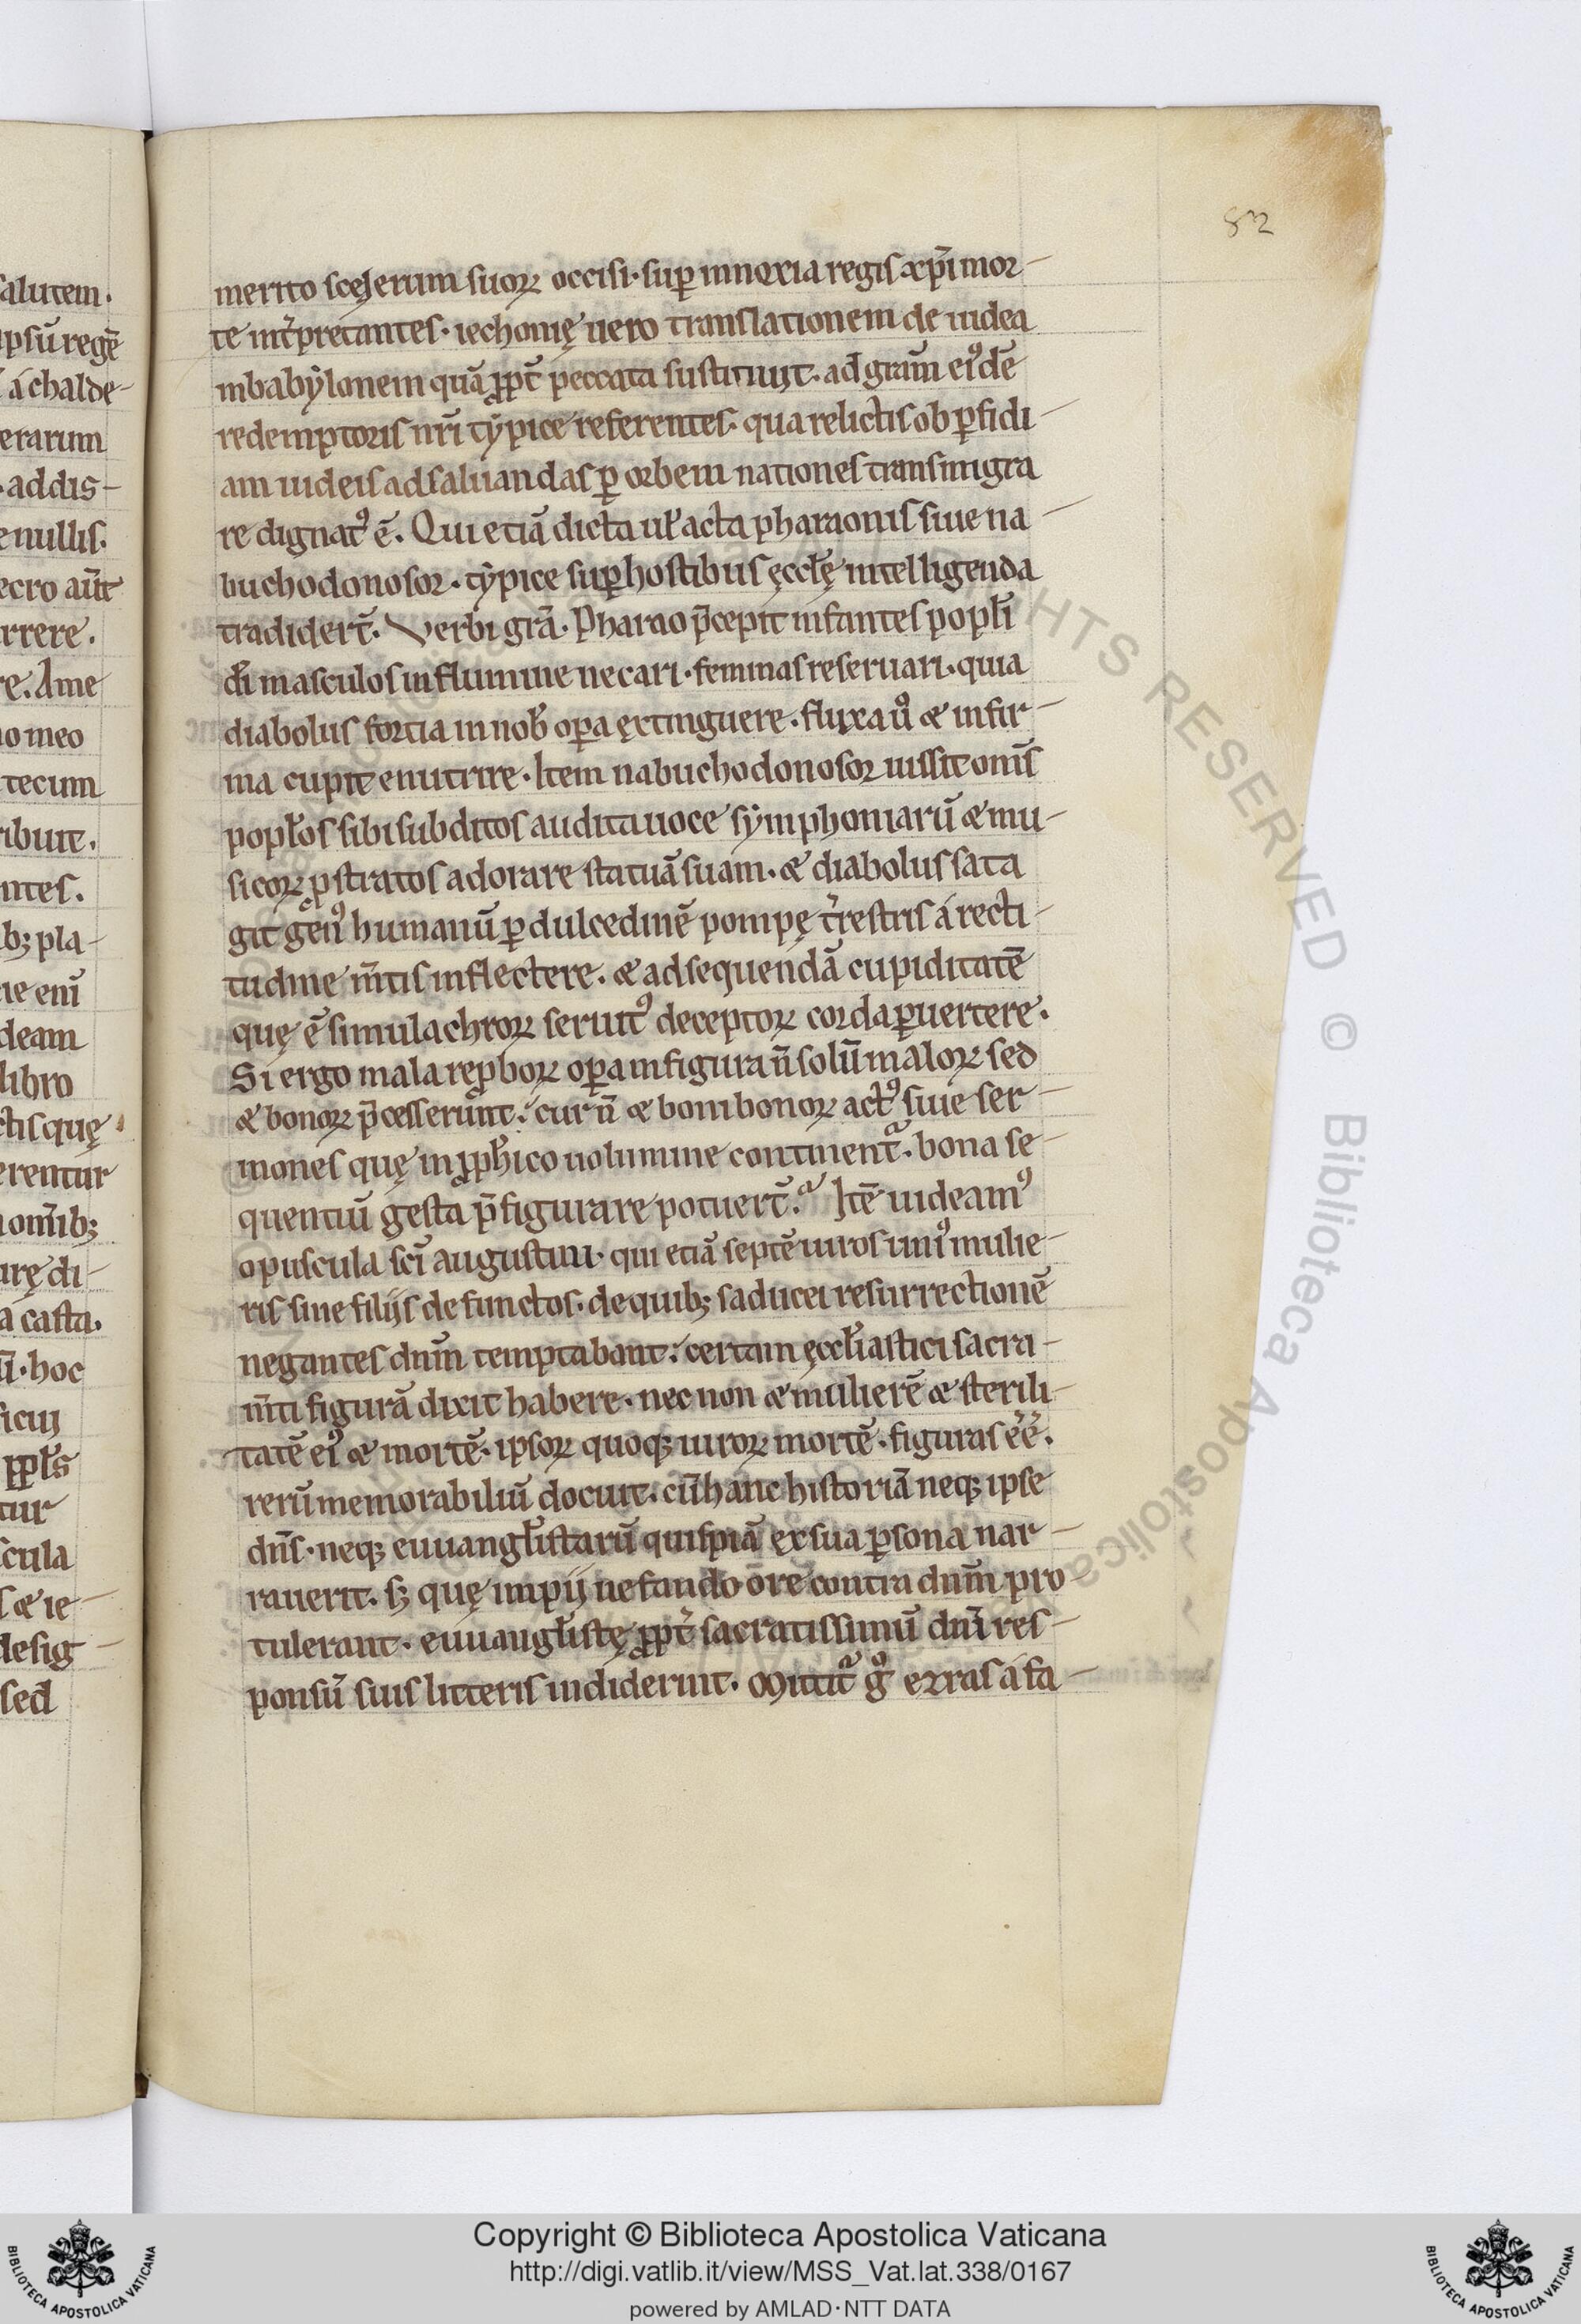 82
alutem.
ipsū regē
á chalde-
erarum
addis-
e nullis.
ecro aūt
rrere.
re. Ame
io meo
tecum
ribure.
ntes.
b; pla-
ie eni̅
deam
libro
ctis quę
erentur
om̅ib;
urę di-
a casta.
hoc
ficuı
pp̅ls
tur
scula
s & ie-
desig-
sed
merito scelerum suoꝝ occisi· sup̱ innoxia regis xp̅i mor-
te int̅pretantes· iechonię uero translationem de iudea
in babẏlonem quā ꝓpt̅ peccata sustinuit· ad gr̅am eiꝰdē
redemptoris nr̅i tẏpice referentes· qua relictis ob ꝑfidi-
am iudeis ad saluandas ꝑ orbem nationes transmigra
re dignatꝰ ē. Qui etiā dicta uł acta pharaonis siue na-
buchodonosor· tẏpice suꝑ hostibus ęccłę intelligenda
tradidert̅. Verbi gr̅a. Pharao p̅cepit infantes popłi
dı̅ masculos in flumine necari· feminas reseruari· quia
diabolus fortia in nob̅ oꝑa extinguere· fluxa ů & infir-
ma cupit enutrire· Item nabuchodonosor iussit om̅s
popłos sibi subditos audita uoce sẏmphoniarū & mu-
sicoꝝ ꝓstratos adorare statuā suam· & diabolus sata
git genꝰ humanū ꝑ dulcedinē pompę t̅restris á recti-
tudine m̅tis inflectere· & ad sequendā cupiditatē
quę ē simulachroꝝ seruitꝰ deceptoꝝ corda ꝑuertere.
Si ergo mala reꝓboꝝ oꝑa in figura n̅ solū maloꝝ sed
& bonoꝝ p̅cesserunt· cur n̅ & boni bonoꝝ actꝰ siue ser-
mones quę in ꝓph̅ico uolumine continent̅· bona se-
quentiū gesta p̅figurare potuert̅. Itē uideamꝰ
opuscula sc̅i augustini· qui etiā septē uiros uniꝰ mulie-
ris sine filijs defunctos· de quib; saducei resurrectionē
negantes dn̅m temptabant· certam ęccłiastici sacra-
m̅ti figurā dixit habere· nec non & mulierē & sterili-
tatē eiꝰ & mortē· ipsoꝝ quoq; uiroꝝ mortē· figuras ēē.
rerū memorabiliū docuit· cū hanc historiā neq; ipse
dn̅s· neq; euuangłistarū quispiā ex sua ꝑsona nar-
rauerit· s; quę impij nefando ore contra dn̅m pro-
tulerant· euuangłistę ꝓpt̅ sacratissimū dn̅i res-
ponsū suis litteris indiderint· Mittit̅ g̊ ezras á fa-
Copyright © Biblioteca Apostolica Vaticana
http://digi.vatlib.it/view/MSS_Vat.lat.338/0167
powered by AMLAD·NTT DATA
BIBLIOTECA APOSTOLICA VATICANA
BIBLIOTECA APOSTOLICA VATICANA
ALL RIGHTS RESERVED © Biblioteca Apostolica